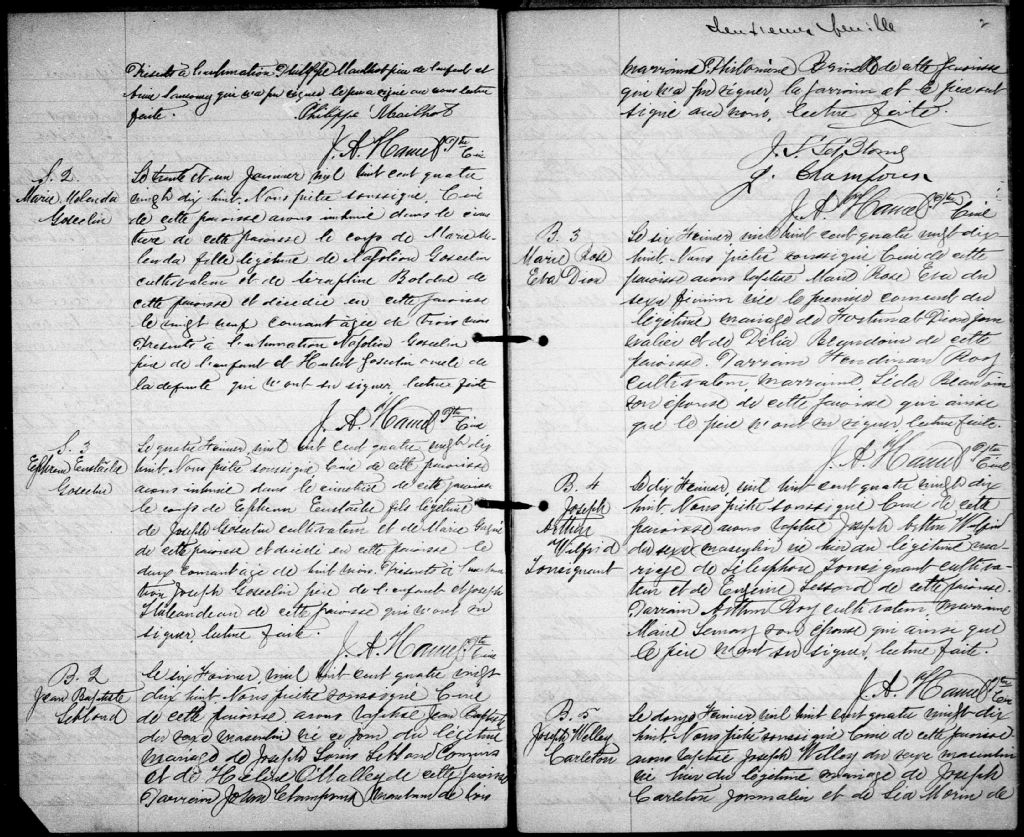 Présents à l'inhumation Philippe Mailhot père de l'enfant et
qui n'a pu signer le père signé avec nous lecture
faite. Philippe Mailhot
J. A. Hamel Ptre Curé
S. 2
Marie
Gosselin
Le trente et un Janvier mil huit cent quatre
vingt dix huit. Nous prêtre soussigné Curé
de cette paroisse avons inhumé dans le cime
tière de cette paroisse le corps de Marie
fille légitime de Napoléon Gosselin
cultivateur et de Séraphine Bolduc de
cette paroisse et décédée en cette paroisse
le vingt neuf courant agée de trois mois
Présents à l'inhumation Napoléon Gosselin
père de l'enfant et Hubert Gosselin oncle de
la defunte qui n'ont su signer lecture faite
J. A. Hamel Ptre Curé
S. 3
Ephrem Eustache
Gosselin
Le quatre Février mil huit cent quatre vingt dix
huit. Nous prêtre soussigné Curé de cette paroisse
avons inhumé dans le cimetière de cette paroisse
le corps de Ephrem Eustache fils légitime
de Joseph Gosselin cultivateur et de Marie
de cette paroisse et décédé en cette paroisse le
deux courant agé de huit mois. Présents à l'inhuma
tion Joseph Gosselin père de l'enfant et Joseph
de cette paroisse qui n'ont su
signer lecture faite.
J. A. Hamel Ptre Curé
B. 2
Jean Baptiste
Leblond
Le six Février mil huit cent quatre vingt
dix huit. Nous prêtre soussigné Curé
de cette paroisse avons baptisé Jean Baptiste
du sexe masculin né ce jour du légitime
mariage de Joseph Louis Leblond
et de Hélène O'Malley de cette paroisse
Parrain John marchand de bois
Deuxième feuille
2
marraine Philomène de cette paroisse
qui n'a pu signer le parrain et le père ont
signé avec nous, lecture faite.
J.
J.
J. A. Hamel Ptre Curé
B. 3
Marie Rose
Eva Dion
Le six Février mil huit cent quatre vingt dix
huit. Nous prêtre soussigné Curé de cette
paroisse avons baptisé Marie Rose Eva du
sexe féminin née le premier courant du
légitime mariage de Fortunat Dion
et de Délia de cette
paroisse. Parrain Ferdinan Roy
cultivateur, marraine Léda
son épouse de cette paroisse qui ainsi
que le père n'ont su signer lecture faite.
J. A. Hamel Ptre Curé
B. 4
Joseph
Arthur
Wilfrid
Lonsignant
Le dix Février mil huit cent quatre vingt dix
huit. Nous prêtre soussigné Curé de cette
paroisse avons baptisé Joseph Arthur Wilfrid
du sexe masculin né hier du légitime ma
riage de Télesphore Lonsignant cultiva
teur et de Eugénie Lessard de cette paroisse.
Parrain Arthur Roy cultivateur, marraine
Marie son épouse qui ainsi que
le père n'ont su signer, lecture faite.
J. A. Hamel Ptre Curé
B. 5
Joseph Welley
Carleton
Le douze Février mil huit cent quatre vingt dix
huit. Nous prêtre soussigné Curé de cette paroisse
avons baptisé Joseph Welley du sexe masculin
né hier du légitime mariage de Joseph
Carleton journalier et de Léa Morin de